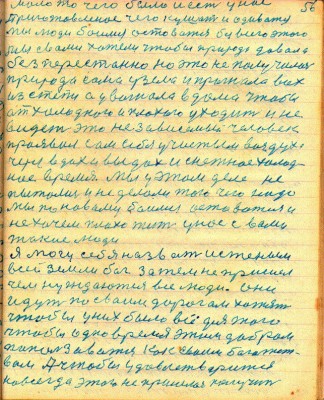 мало то чего было и есть у нас
Приготовленое чего кушать и одивать
мы люди боимся оставатся без всего этого
мы с вами хотем чтобы природа давала
без перестанно но это не получился
природа сама узела и прижала всех
из степи а у вагнала в дома чтобы
от холодного и плохого уходит и не
видет это не зависемый человек
прозвал сам себя учистым воздух
чере вдох и выдох и снежное холод
ное время мы у этом деле не
пытолис и не делали того чего надо
мы по новому боимся оставатся и
не хочем этого у нас с вами
такие люди
Я могу себя назват истеным
всей земли бог затем не пришол
чем нуждаются все люди. они
идут по своим дорогам хотят
чтобы у них было всё для того
чтобы одно время этим добром
похвалятся как своим богатст
вом А чтобы удовлетворится
навсегда этого не пришлос получит
56